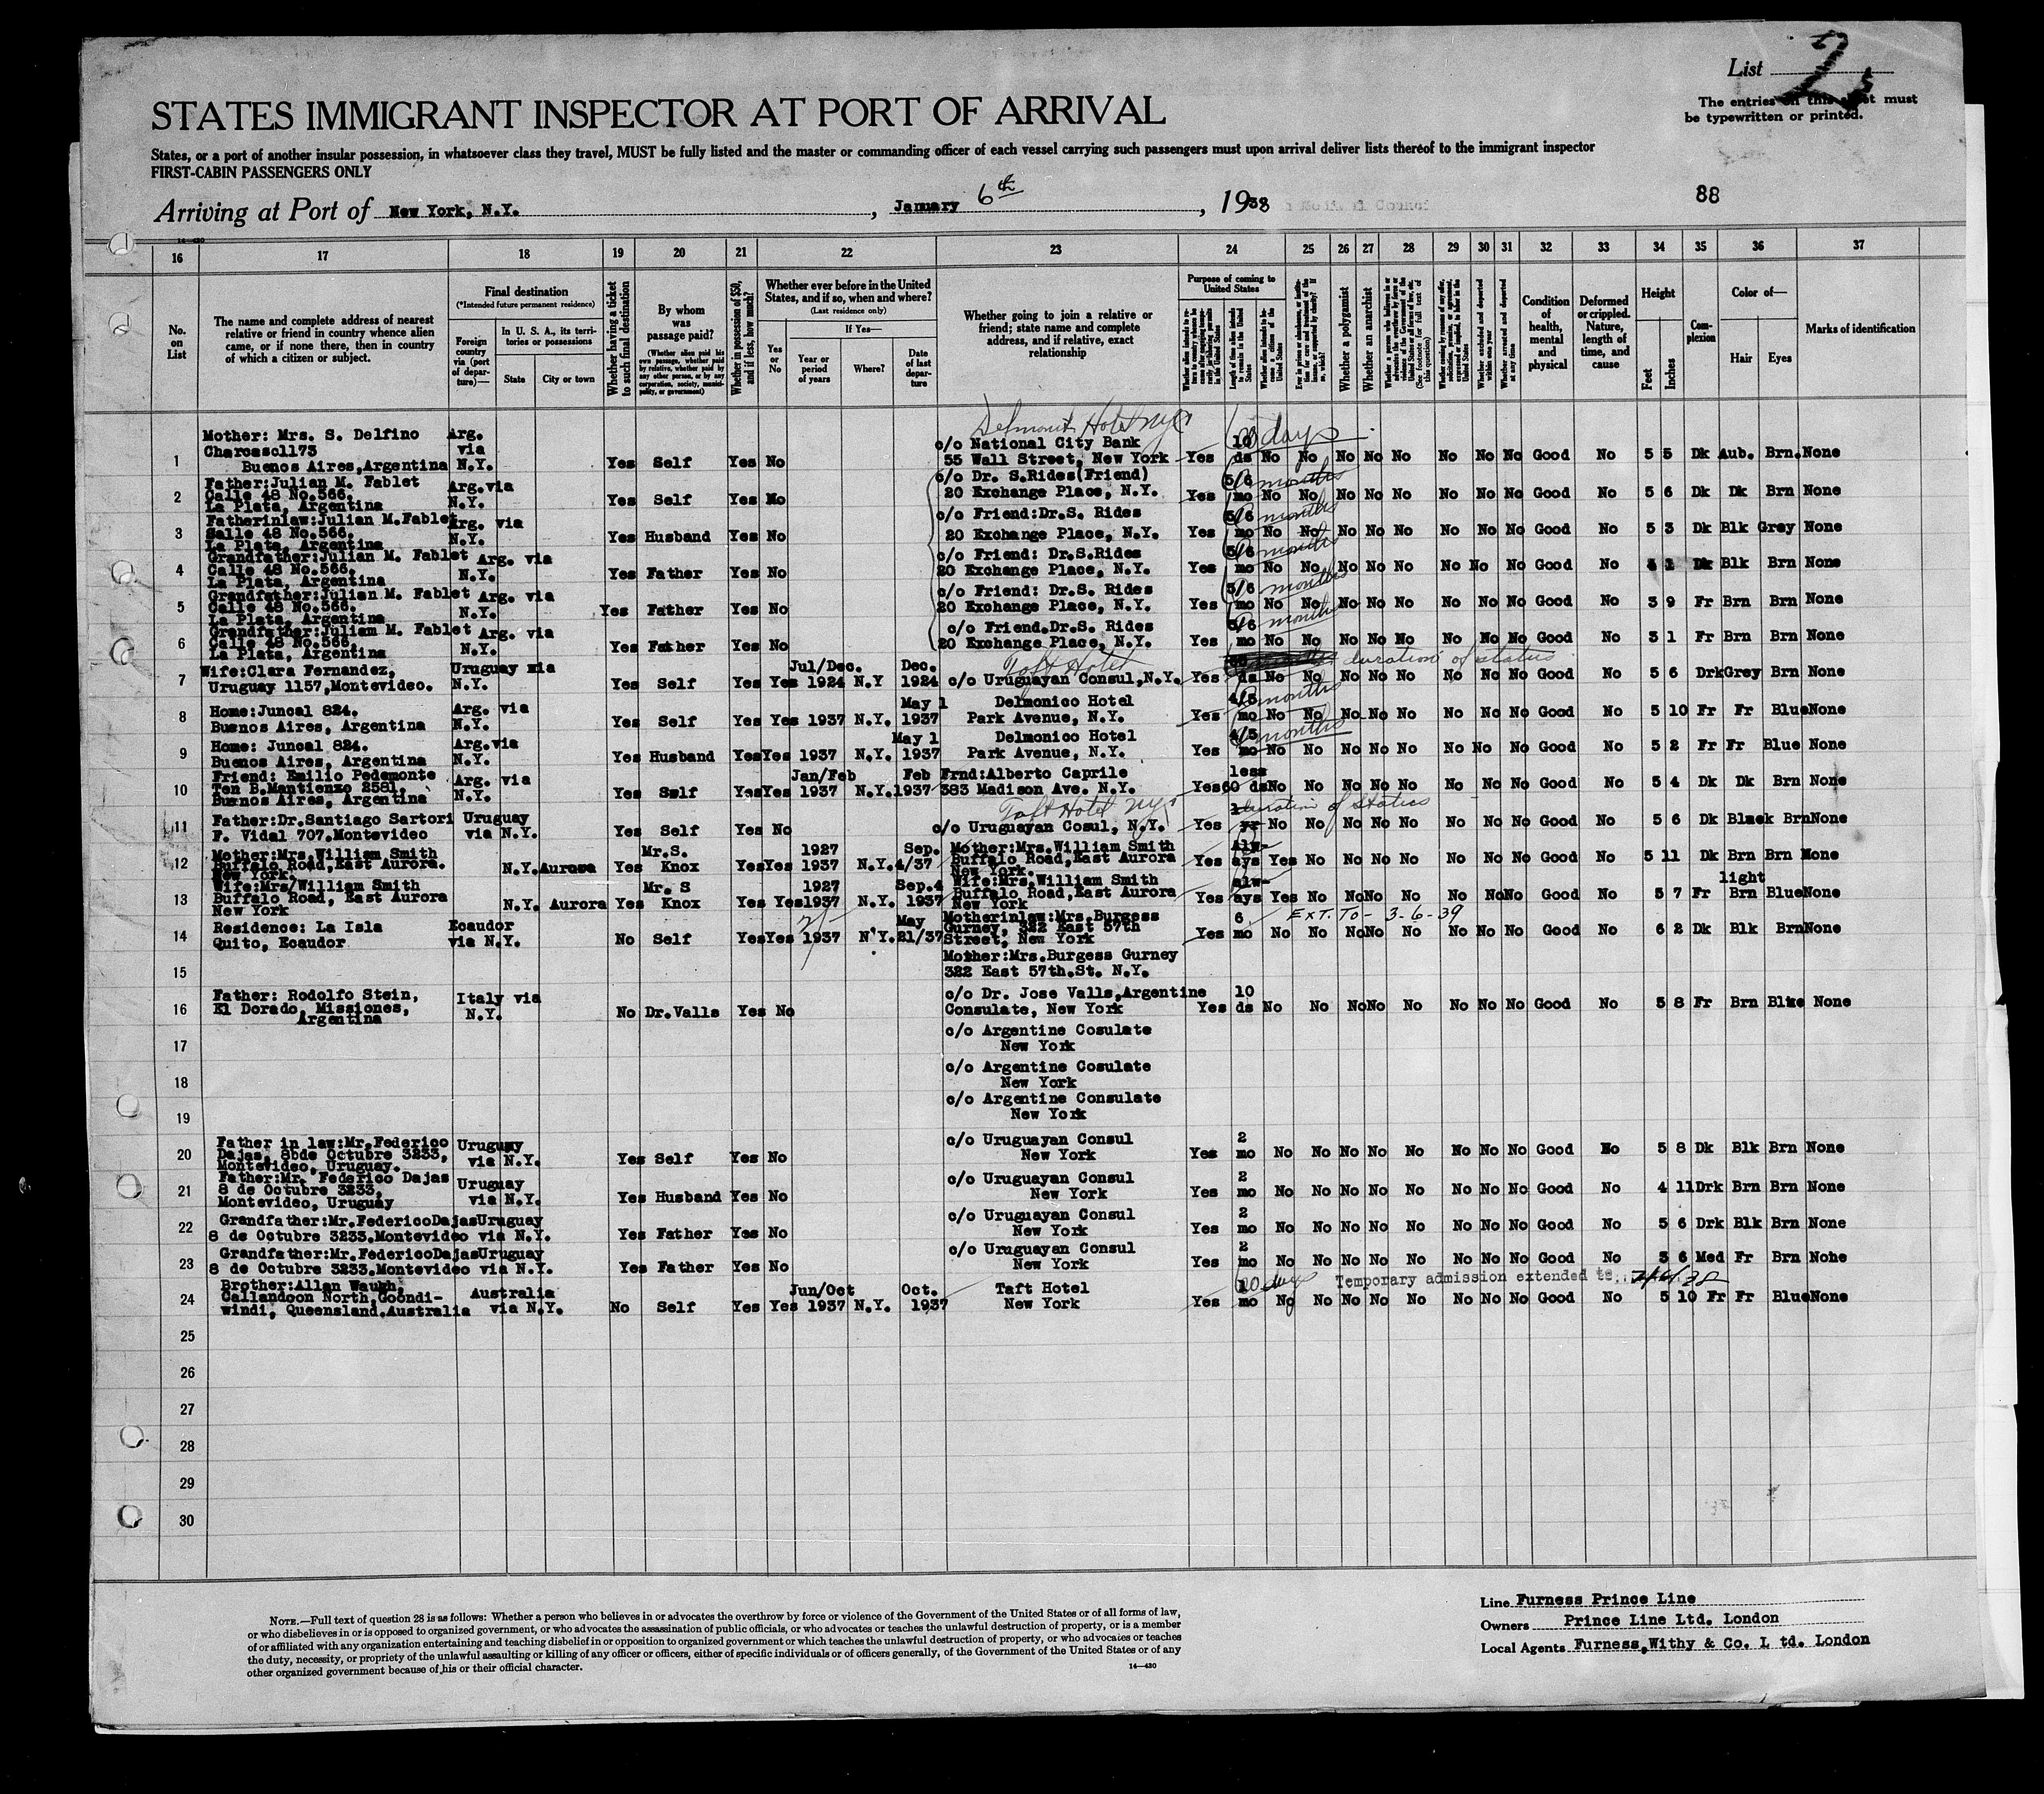 List 2
The entries on this sheet must
be typewritten or printed.
STATES IMMIGRANT INSPECTOR AT PORT OF ARRIVAL
States, or a port of another insular possession, in whatsoever class they travel, MUST be fully listed and the master or commanding officer of each vessel carrying such passengers must upon arrival deliver lists thereof to the immigrant inspector
FIRST-CABIN PASSENGERS ONLY
Arriving at Port of New York, N.Y., January 6th, 1938
88
14—430
16 17 18 19 20 21 22 23 24 25 26 27 28 29 30 31 32 33 34 35 36 37
No. on List
The name and complete address of nearest relative or friend in country whence alien came, or if none there, then in country of which a citizen or subject.
Final destination
(*Intended future permanent residence)
Foreign country via (port of departure)—
In U. S. A., its territories or possessions
State
City or town
Whether having a ticket to such final destination
By whom was passage paid?
(Whether alien paid his own passage, whether paid by relative, whether paid by any other person, or by any corporation, society, municipality, or government)
Whether in possession of $50, and if less, how much?
Whether ever before in the United States, and if so, when and where?
(Last residence only)
Yes or No
If Yes—
Year or period of years
Where?
Date of last departure
Whether going to join a relative or friend; state name and complete address, and if relative, exact relationship
Purpose of coming to United States
Length of time alien intends to remain in the United States
Whether alien intends to become a citizen of the United States
Whether a polygamist
Whether an anarchist
(See footnote for full text of this question)
Whether excluded and deported within one year
Whether arrested and deported at any time
Condition of health, mental and physical
Deformed or crippled. Nature, length of time, and cause
Height
Feet
Inches
Complexion
Color of—
Hair
Eyes
Marks of identification
Delmont Hotel NYC
Mother: Mrs. S. Delfino Arg. c/o National City Bank 10 days
Charcas1173 via
1 Buenos Aires,Argentina N.Y. Yes Self Yes No 55 Wall Street, New York Yes ds No No No No No No No No Good No 5 5 Dk Aub. Brn. None
Father:Julian M. Fablet Arg.via c/o Dr. S.Rides(Friend) 5/6 months
2 Calle 48 No.566. N.Y. Yes Self Yes No 20 Exchange Place, N.Y. Yes mo No No No No No No No No Good No 5 6 Dk Dk Brn None
La Plata, Argentina
Fatherinlaw:Julian M.Fablet Arg. via c/o Friend:Dr.S. Rides 5/6 months
3 Salle 48 No.566. N.Y. Yes Husband Yes No 20 Exchange Place, N.Y. Yes mo No No No No No No No No Good No 5 3 Dk Blk Grey None
La Plata, Argentina
Grandfather:Julian M. Fablet Arg. via c/o Friend: Dr.S.Rides 5/6 months
4 Calle 48 No.566. N.Y. Yes Father Yes No 20 Exchange Place, N.Y. Yes mo No No No No No No No No Good No 4 1 Dk Blk Brn None
La Plata, Argentina
Grandfather:Julian M. Fablet Arg. via c/o Friend: Dr.S. Rides 5/6 months
5 Calle 48 No.566. N.Y. Yes Father Yes No 20 Exchange Place, N.Y. Yes mo No No No No No No No No Good No 3 9 Fr Brn Brn None
La Plata, Argentina
Grandfather:Juliam M. Fablet Arg. via c/o Friend.Dr.S. Rides 5/6 months
6 Calle 48 No.566. N.Y. Yes Father Yes No 20 Exchange Place, N.Y. Yes mo No No No No No No No No Good No 3 1 Fr Brn Brn None
La Plata, Argentina
Wife:Clara Fernandez, Uruguay via Jul/Dec. Dec. Taft Hotel duration of status
7 Uruguay 1157,Montevideo. N.Y. Yes Self Yes Yes 1924 N.Y 1924 c/o Uruguayan Consul,N.Y. Yes ds No No No No No No No No Good No 5 6 Drk Grey Brn None
Home:Juncal 824. Arg. via May 1 Delmonico Hotel 4/5 months
8 Buenos Aires, Argentina N.Y. Yes Self Yes Yes 1937 N.Y. 1937 Park Avenue, N.Y. Yes mo No No No No No No No No Good No 5 10 Fr Fr Blue None
Home: Juncal 824. Arg.via May 1 Delmonico Hotel 4/5 months
9 Buenos Aires, Argentina N.Y. Yes Husband Yes Yes 1937 N.Y. 1937 Park Avenue, N.Y. Yes mo No No No No No No No No Good No 5 2 Fr Fr Blue None
Friend: Emilio Pedemonte Arg. via Jan/Feb Feb Frnd:Alberto Caprile less
10 Ten B.Mantienzo 2581. N.Y. Yes Self Yes Yes 1937 N.Y. 1937 383 Madison Ave. N.Y. Yes 60 ds No No No No No No No No Good No 5 4 Dk Dk Brn None
Buenos Aires, Argentina
Father:Dr.Santiago Sartori Uruguay Taft Hotel NYC 1 duration of status
11 F. Vidal 707.Montevideo via N.Y. Yes Self Yes No c/o Uruguayan Cosul, N.Y. Yes yr No No No No No No No No Good No 5 6 Dk Black Brn None
Mother:Mrs.William Smith Mr.S. 1927 Sep. Mother:Mrs.William Smith Alw-
12 Buffalo Road,East Aurora. N.Y. Aurora Yes Knox Yes Yes 1937 N.Y. 4/37 Buffalo Road,East Aurora Yes ays Yes No No No No No No No Good No 5 11 Dk Brn Brn None
New York. New York.
Wife:Mrs/William Smith Mr. S 1927 Sep.4 Wife:Mrs.William Smith alw- light
13 Buffalo Road, East Aurora N.Y. Aurora Yes Knox Yes Yes 1937 N.Y. 1937 Buffalo Road,East Aurora Yes ays Yes No No No No No No No Good No 5 7 Fr Brn Blue None
New York New York
Residence: La Isla Ecuador May Motherinlaw:Mrs.Burgess 6 EXT. TO - 3-6-39
14 Quito, Ecuador via N.Y. No Self Yes Yes 1937 N.Y. 21/37 Gurney, 322 East 57th Yes mo No No No No No No No No Good No 6 2 Dk Blk Brn None
Street, New York
15 Mother:Mrs.Burgess Gurney
322 East 57th.St. N.Y.
Father: Rodolfo Stein, Italy via c/o Dr. Jose Valls,Argentine 10
16 El Dorado, Missiones, N.Y. No Dr.Valls Yes No Consulate, New York Yes ds No No No No No No No No Good No 5 8 Fr Brn Blue None
Argentina
17 c/o Argentine Cosulate
New York
18 c/o Argentine Cosulate
New York
19 c/o Argentine Consulate
New York
Father in law:Mr.Federico Uruguay c/o Uruguayan Consul 2
20 Dajas, 8bde Octubre 3233, via N.Y. Yes Self Yes No New York Yes mo No No No No No No No No Good No 5 8 Dk Blk Brn None
Montevideo, Uruguay.
Father:Mr. Federico Dajas Uruguay c/o Uruguayan Consul 2
21 8 de Octubre 3233, via N.Y. Yes Husband Yes No New York Yes mo No No No No No No No No Good No 4 11 Drk Brn Brn None
Montevideo, Uruguay
Grandfather:Mr.FedericoDajas Uruguay c/o Uruguayan Consul 2
22 8 de Octubre 3233.Montevideo via N.Y. Yes Father Yes No New York Yes mo No No No No No No No No Good No 5 6 Drk Blk Brn None
Grandfather:Mr.FedericoDajas Uruguay c/o Uruguayan Consul 2
23 8 de Octubre 3233.Montevideo via N.Y. Yes Father Yes No New York Yes mo No No No No No No No No Good No 3 6 Med Fr Brn None
Brother:Allan Waugh, Australia Jun/Oct Oct. Taft Hotel 10 days Temporary admission extended to
24 Callandoon North,Goondi- via N.Y. No Self Yes Yes 1937 N.Y. 1937 New York Yes mo No No No No No No No No Good No 5 10 Fr Fr Blue None
windi, Queensland.Australia
25
26
27
28
29
30
NOTE.—Full text of question 28 is as follows: Whether a person who believes in or advocates the overthrow by force or violence of the Government of the United States or of all forms of law,
or who disbelieves in or is opposed to organized government, or who advocates the assassination of public officials, or who advocates or teaches the unlawful destruction of property, or is a member
of or affiliated with any organization entertaining and teaching disbelief in or opposition to organized government or which teaches the unlawful destruction of property, or who advocates or teaches
the duty, necessity, or propriety of the unlawful assaulting or killing of any officer or officers, either of specific individuals or of officers generally, of the Government of the United States or of any
other organized government because of his or their official character.
14—430
Line Furness Prince Line
Owners Prince Line Ltd. London
Local Agents Furness,Withy & Co. L td. London